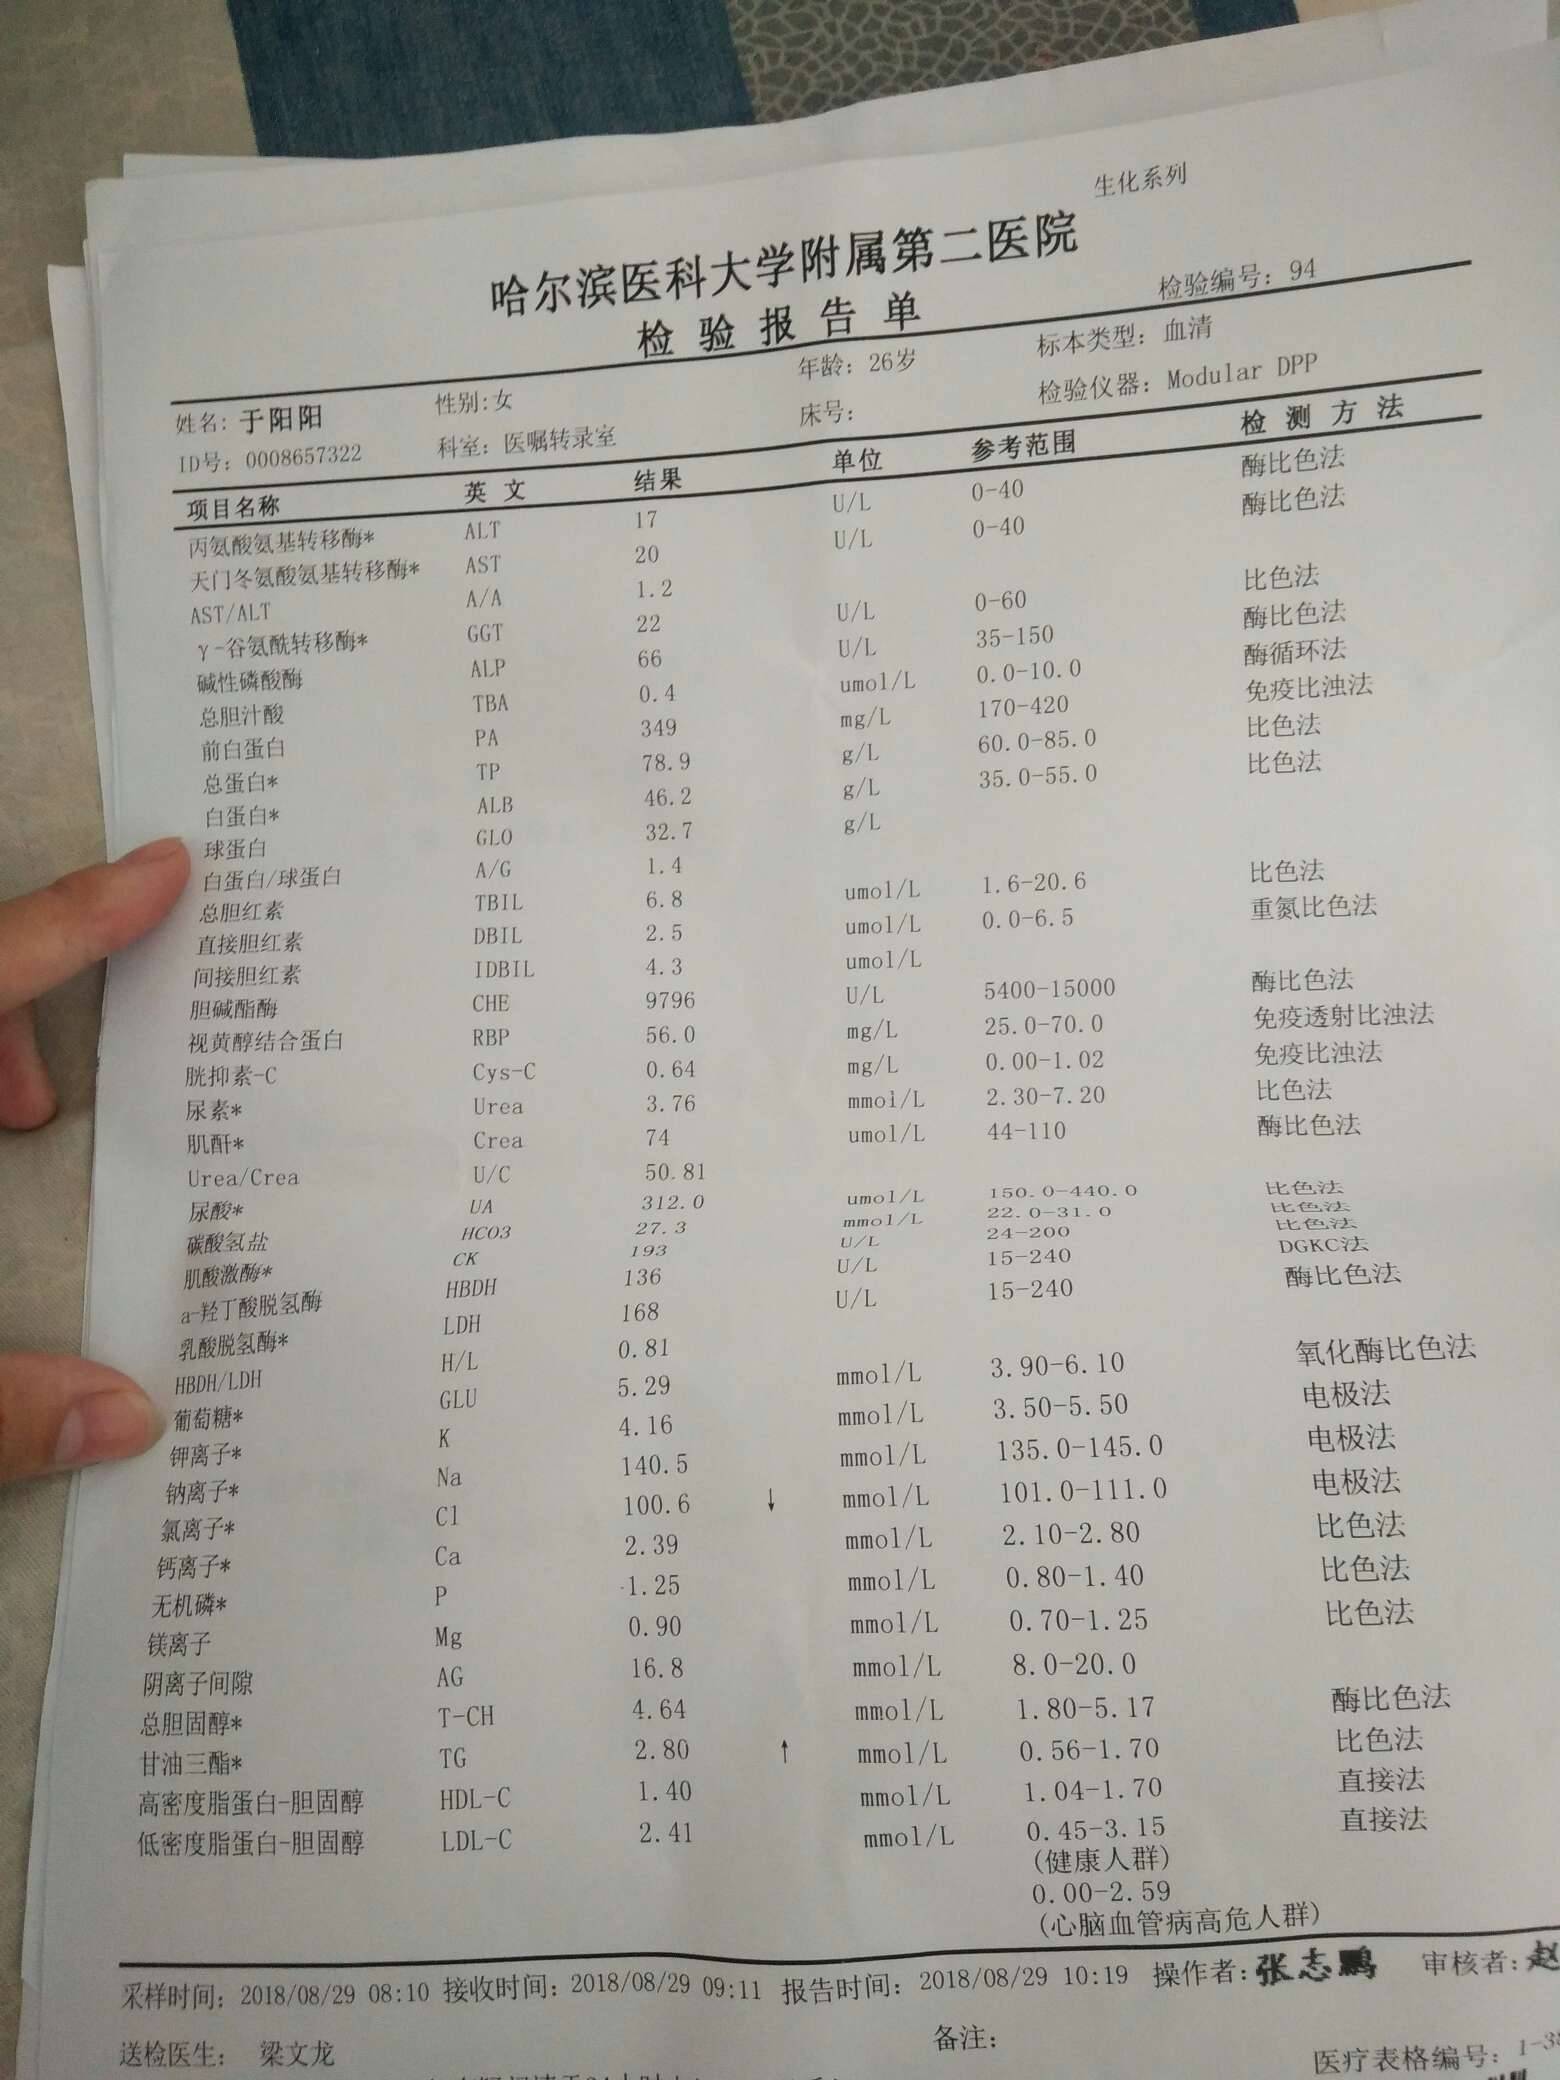 生化系列
哈尔滨医科大学附属第二医院
检验报告单
检验编号：94
姓名：于阳阳 性别:女 年龄：26岁 标本类型：血清
ID号：0008657322 科室：医嘱转录室 床号： 检验仪器：Modular DPP
项目名称 英文 结果 单位 参考范围 检测方法
丙氨酸氨基转移酶* ALT 17 U/L 0-40 酶比色法
天门冬氨酸氨基转移酶* AST 20 U/L 0-40 酶比色法
AST/ALT A/A 1.2
γ-谷氨酰转移酶* GGT 22 U/L 0-60 比色法
碱性磷酸酶 ALP 66 U/L 35-150 酶比色法
总胆汁酸 TBA 0.4 umol/L 0.0-10.0 酶循环法
前白蛋白 PA 349 mg/L 170-420 免疫比浊法
总蛋白* TP 78.9 g/L 60.0-85.0 比色法
白蛋白* ALB 46.2 g/L 35.0-55.0 比色法
球蛋白 GLO 32.7 g/L
白蛋白/球蛋白 A/G 1.4
总胆红素 TBIL 6.8 umol/L 1.6-20.6 比色法
直接胆红素 DBIL 2.5 umol/L 0.0-6.5 重氮比色法
间接胆红素 IDBIL 4.3 umol/L
胆碱酯酶 CHE 9796 U/L 5400-15000 酶比色法
视黄醇结合蛋白 RBP 56.0 mg/L 25.0-70.0 免疫透射比浊法
胱抑素-C Cys-C 0.64 mg/L 0.00-1.02 免疫比浊法
尿素* Urea 3.76 mmol/L 2.30-7.20 比色法
肌酐* Crea 74 umol/L 44-110 酶比色法
Urea/Crea U/C 50.81
尿酸* UA 312.0 umol/L 150.0-440.0 比色法
碳酸氢盐 HCO3 27.3 mmol/L 22.0-31.0 比色法
肌酸激酶* CK 193 U/L 24-200 比色法
a-羟丁酸脱氢酶 HBDH 136 U/L 15-240 DGKC法
乳酸脱氢酶* LDH 168 U/L 15-240 酶比色法
HBDH/LDH H/L 0.81
葡萄糖* GLU 5.29 mmol/L 3.90-6.10 氧化酶比色法
钾离子* K 4.16 mmol/L 3.50-5.50 电极法
钠离子* Na 140.5 mmol/L 135.0-145.0 电极法
氯离子* Cl 100.6 ↓ mmol/L 101.0-111.0 电极法
钙离子* Ca 2.39 mmol/L 2.10-2.80 比色法
无机磷* P 1.25 mmol/L 0.80-1.40 比色法
镁离子 Mg 0.90 mmol/L 0.70-1.25 比色法
阴离子间隙 AG 16.8 mmol/L 8.0-20.0
总胆固醇* T-CH 4.64 mmol/L 1.80-5.17 酶比色法
甘油三酯* TG 2.80 ↑ mmol/L 0.56-1.70 比色法
高密度脂蛋白-胆固醇 HDL-C 1.40 mmol/L 1.04-1.70 直接法
低密度脂蛋白-胆固醇 LDL-C 2.41 mmol/L 0.45-3.15 直接法
(健康人群)
0.00-2.59
(心脑血管病高危人群)
采样时间：2018/08/29 08:10 接收时间：2018/08/29 09:11 报告时间：2018/08/29 10:19 操作者：张志鹏 审核者：赵
送检医生： 梁文龙 备注：
医疗表格编号：